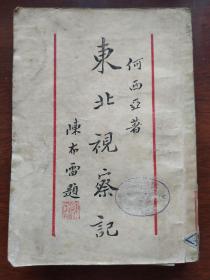 何西亞著
東北視察記
陳布雷題